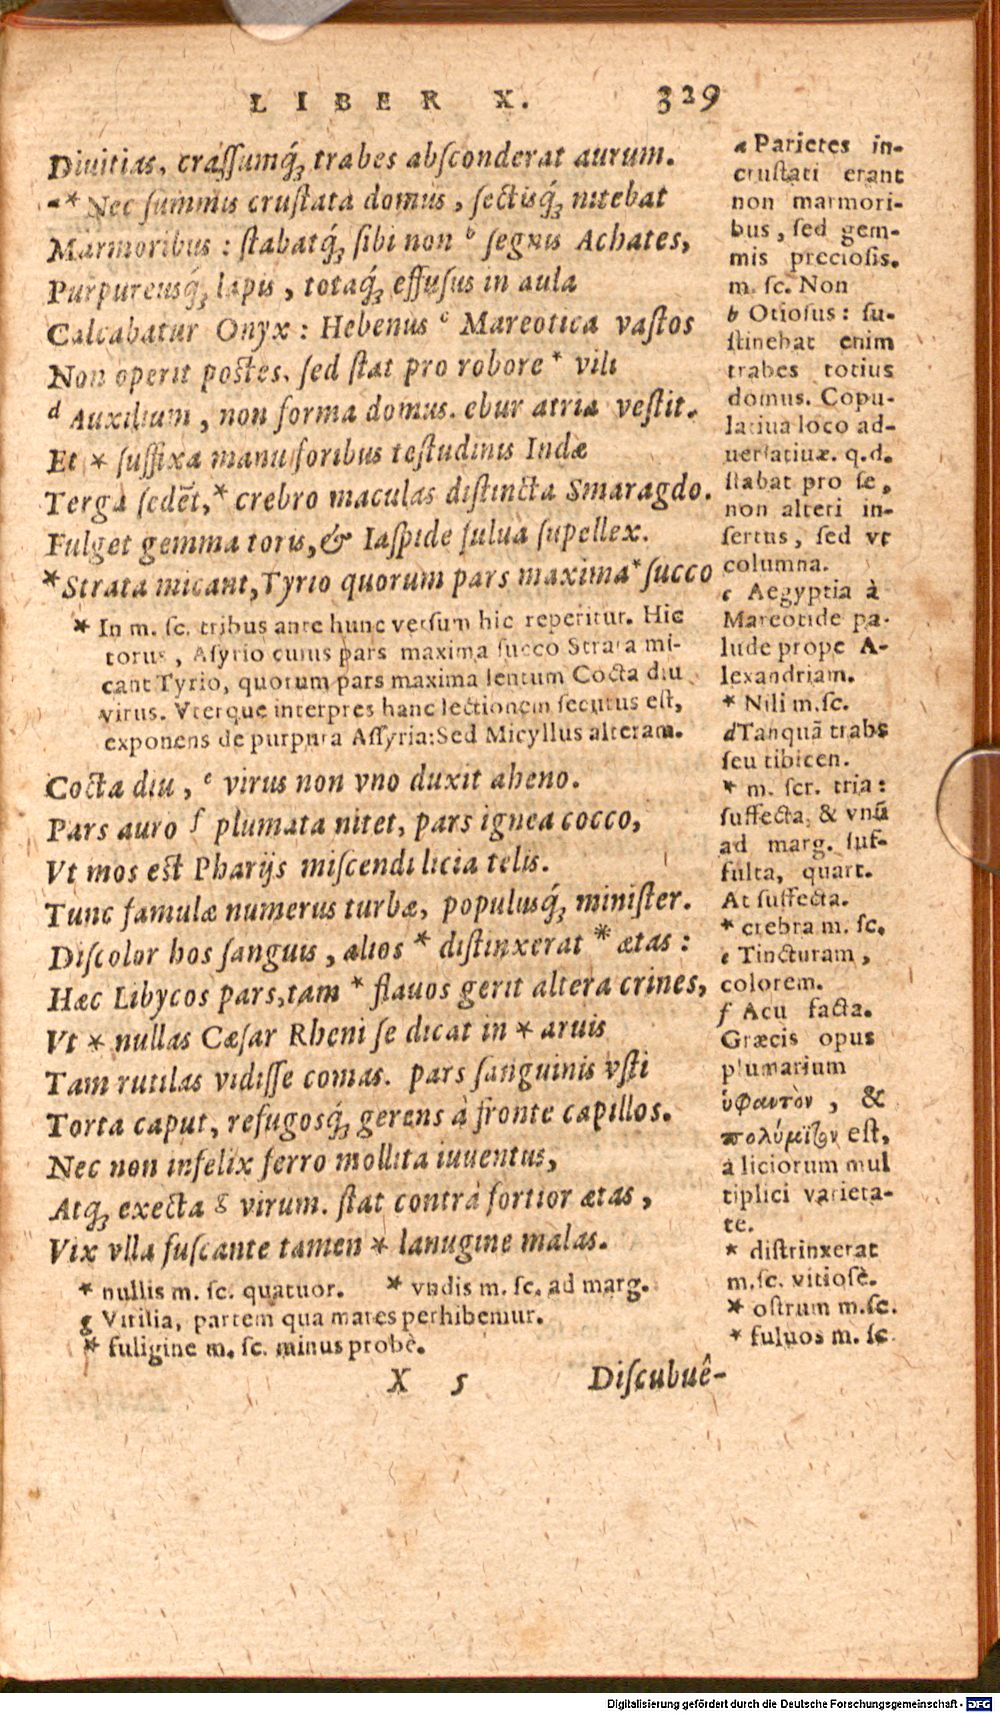 LIBER X. 329
Diuitias, crassumq́; trabes absconderat aurum.
a* Nec summis crustata domus, sectisq́; nitebat
Marmoribus: stabatq́; sibi non b segnis Achates,
Purpureusq́; lapis, totaq́; effusus in aula
Calcabatur Onyx: Hebenus c Mareotica vastos
Non operit postes, sed stat pro robore * vili
d Auxilium, non forma domus. ebur atria vestit.
Et * suffixa manu foribus testudinis Indæ
Terga sedẽt, * crebro maculas distincta Smaragdo.
Fulget gemma toris, & Iaspide fulua supellex.
* Strata micant, Tyrio quorum pars maxima * succo
* In m. sc. tribus ante hunc versum hic reperitur. Hic
torus, Asyrio cuius pars maxima succo Strata mi-
cant Tyrio, quorum pars maxima lentum Cocta diu
virus. Vterque interpres hanc lectionem secutus est,
exponens de purpura Assyria: Sed Micyllus alteram.
Cocta diu, e virus non vno duxit aheno.
Pars auro f plumata nitet, pars ignea cocco,
Vt mos est Pharijs miscendi licia telis.
Tunc famulæ numerus turbæ, populusq́; minister.
Discolor hos sanguis, alios * distinxerat * ætas:
Hæc Libycos pars, tam * flauos gerit altera crines,
Vt * nullas Cæsar Rheni se dicat in * aruis
Tam rutilas vidisse comas. pars sanguinis vsti
Torta caput, refugosq́; gerens à fronte capillos.
Nec non infelix ferro mollita iuuentus,
Atq́; execta g virum. stat contrà fortior ætas,
Vix vlla fuscante tamen * lanugine malas.
* nullis m. sc. quatuor. * vndis m. sc. ad marg.
g Virilia, partem qua mares perhibemur.
* fuligine m. sc. minus probè.
X 5 Discubuê-
a Parietes in-
crustati erant
non marmori-
bus, sed gem-
mis preciosis.
m. sc. Non
b Otiosus: su-
stinebat enim
trabes totius
domus. Copu-
latiua loco ad-
uersatiuæ. q.d.
stabat pro se,
non alteri in-
sertus, sed vt
columna.
c Aegyptia à
Mareotide pa-
lude prope A-
lexandriam.
* Nili m.sc.
d Tanquã trabs
seu tibicen.
* m. scr. tria:
suffecta, & vnũ
ad marg. suf-
fulta, quart.
At suffecta.
* crebra m. sc.
e Tincturam,
colorem.
f Acu facta.
Græcis opus
plumarium
ὑφαντὸν, &
πολύμιτον est,
à liciorum mul
tiplici varieta-
te.
* distrinxerat
m.sc. vitiosè.
* ostrum m.sc.
* fuluos m. sc
Digitalisierung gefördert durch die Deutsche Forschungsgemeinschaft - DFG